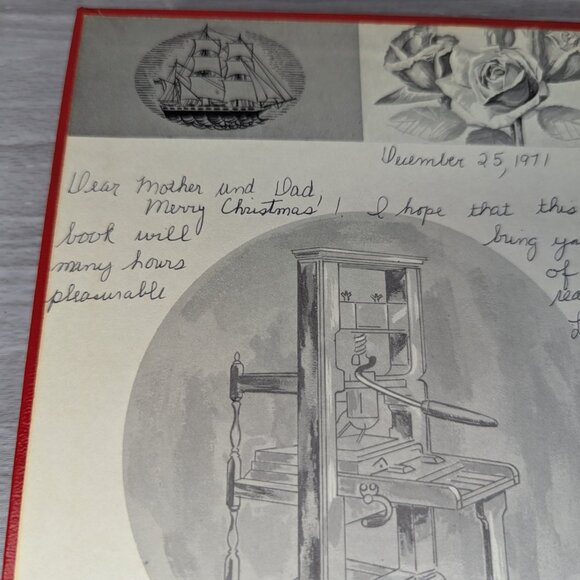 December 25, 1971
Dear Mother and Dad,
Merry Christmas! I hope that this
book will bring
many hours of
pleasurable